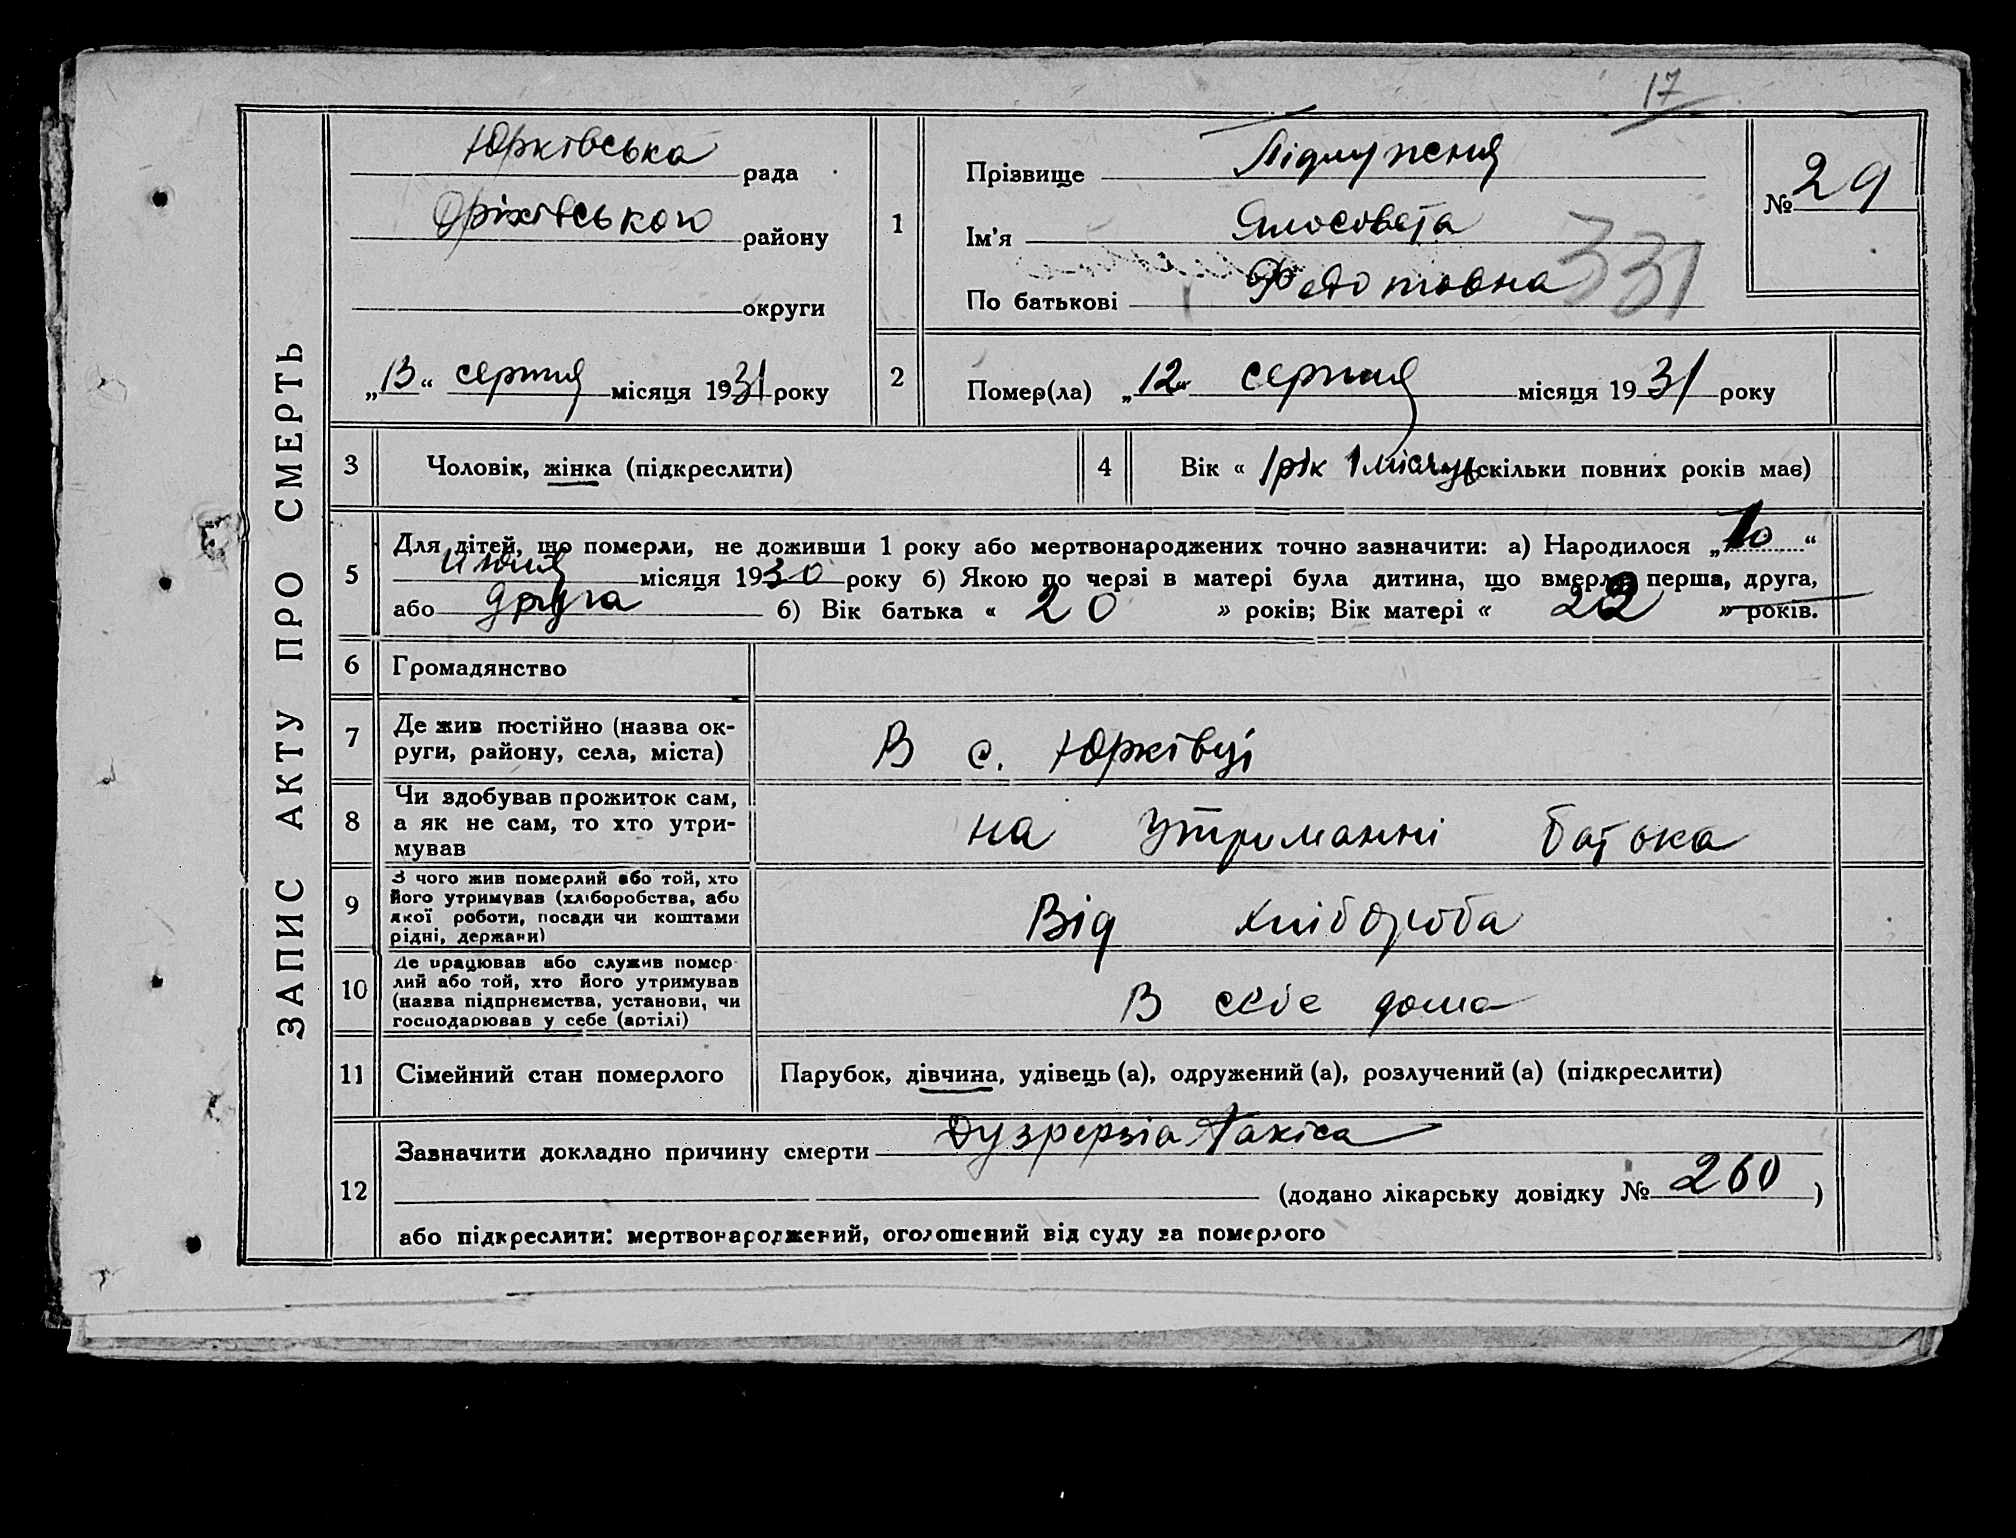 17
ЗАПИС АКТУ ПРО СМЕРТЬ
Юрківська рада
Оріхівського району
округи
„13“ серпня місяця 1931 року
1
Прізвище
Ім'я Ялосовета
По батькові Федотовна
331
№ 29
2
Помер(ла) „12“ серпня місяця 1931 року
3 Чоловік, жінка (підкреслити)
4 Вік « 1 рік 1 місяць скільки повних років має)
5
Для дітей, що померли, не доживши 1 року або мертвонароджених точно зазначити: а) Народилося „10“
июля місяця 1930 року б) Якою по черзі в матері була дитина, що вмерла перша, друга,
або друга б) Вік батька « 20 » років; Вік матері « 22 » років.
6 Громадянство
7 Де жив постійно (назва ок-
руги, району, села, міста)
В с. Юрківці
8 Чи здобував прожиток сам,
а як не сам, то хто утри-
мував
на утриманні батька
9 З чого жив померлий або той, хто
його утримував (хліборобства, або
якої роботи, посади чи коштами
рідні, держави)
Від хлібороба
10 Де працював або служив помер-
лий або той, хто його утримував
(назва підприємства, установи, чи
господарював у себе (артілі)
В себе дома
11 Сімейний стан померлого
Парубок, дівчина, удівець (а), одружений (а), розлучений (а) (підкреслити)
12
Зазначити докладно причину смерти
(додано лікарську довідку № 260)
або підкреслити: мертвонароджений, оголошений від суду за померлого